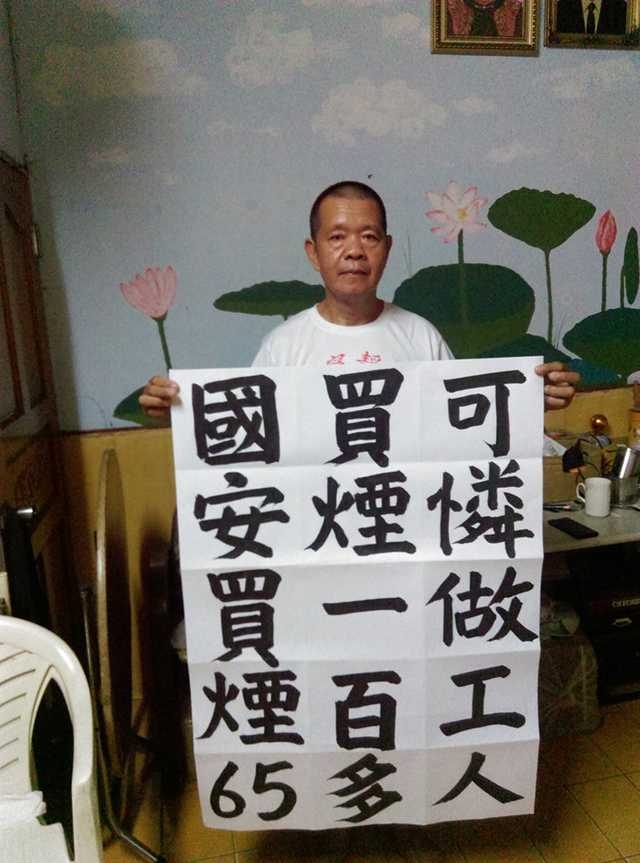 可憐做工人
買煙一百多
國安買煙65